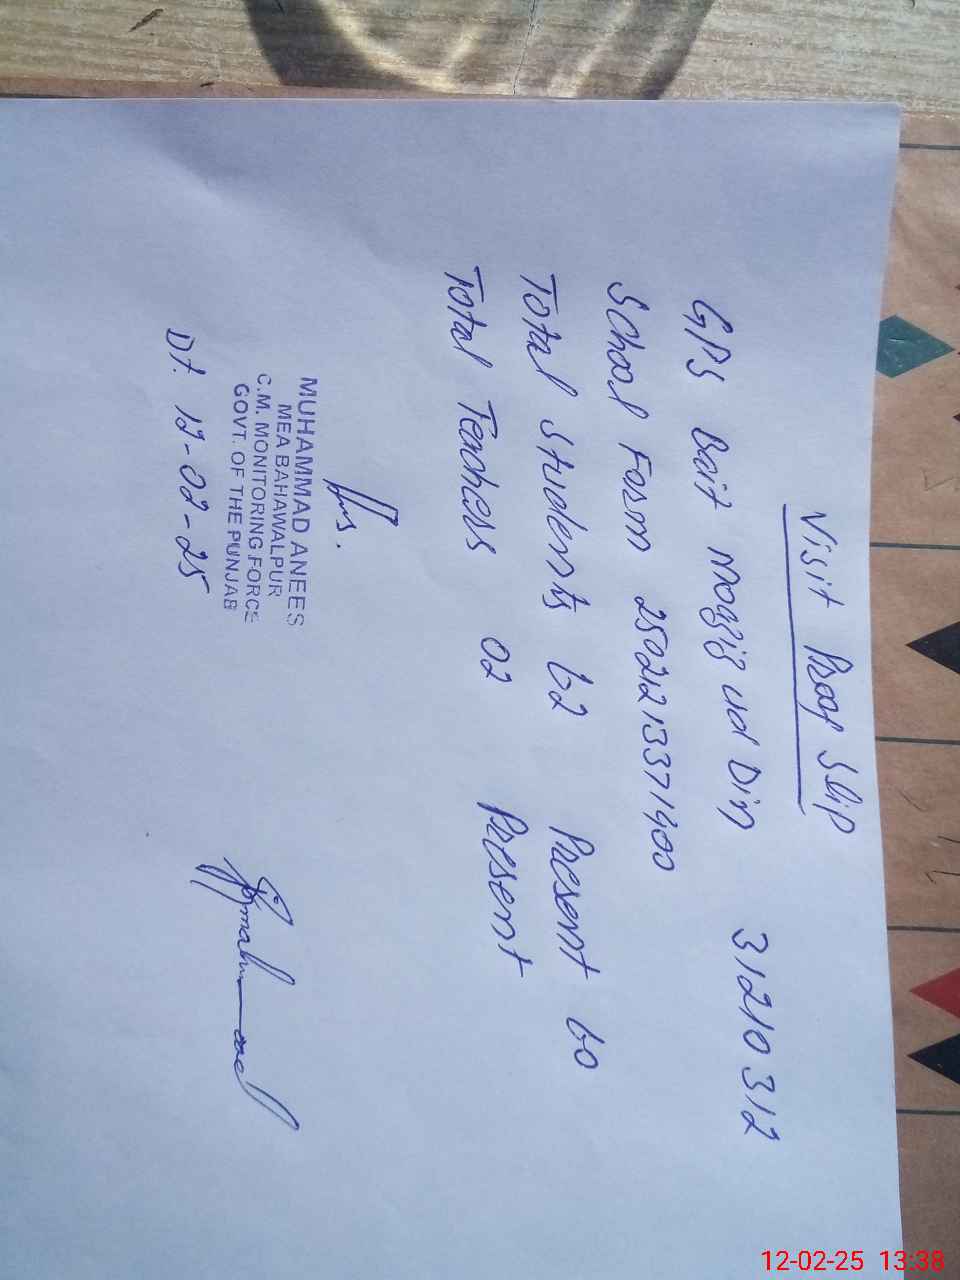 Visit Proof Slip
GPS Bait Mozziz ud Din 31210312
School Form 25021213371400
Total Students 62 Present 60
Total Teachers 02 Present
MUHAMMAD ANEES
MEA BAHAWALPUR
C.M. MONITORING FORCE
GOVT. OF THE PUNJAB
Dt. 12-02-25
12-02-25 13:38